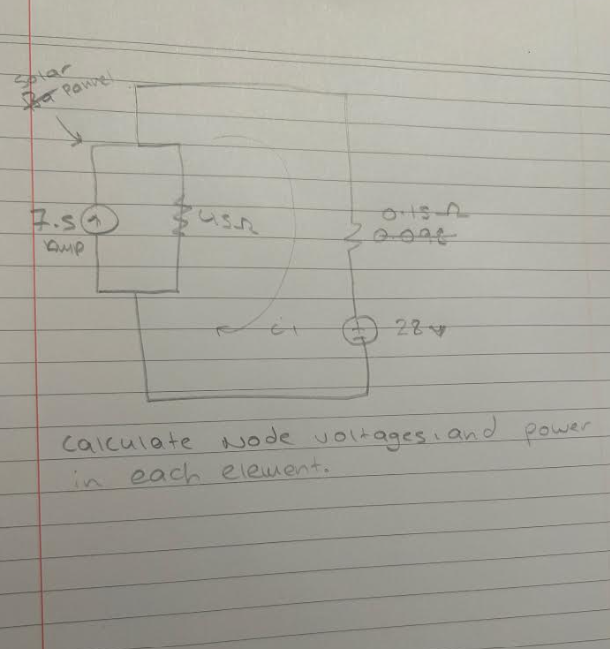 solar
pannel
7.5
Amp
45Ω
0.15Ω
0.098
i1
28v
Calculate Node voltages, and power
in each element.